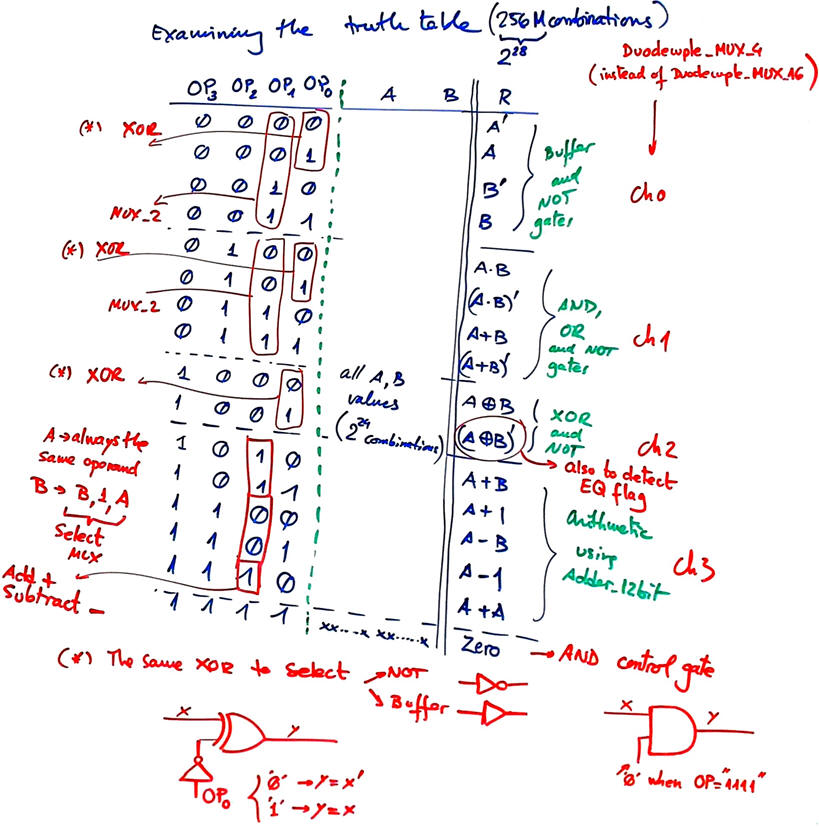 Examining the truth table (256M combinations)
2^28
Duodecuple_MUX_4
(instead of Duodecuple_MUX_16)
OP3 OP2 OP1 OP0 A B R
(*) XOR 0 0 0 0 A'
0 0 0 1 A
0 0 1 0 B'
MUX_2 0 0 1 1 B
Buffer
and
NOT
gates
Ch0
(*) XOR 0 1 0 0 A·B
0 1 0 1 (A·B)'
MUX_2 0 1 1 0 A+B
0 1 1 1 (A+B)'
AND,
OR
and NOT
gates
Ch1
(*) XOR 1 0 0 0 A⊕B
1 0 0 1 (A⊕B)'
all A, B
values
(2^24 combinations)
XOR
and
NOT
Ch2
also to detect
EQ flag
A→always the
same operand
B→ B, 1, A
Select
MUX
Add +
Subtract -
1 0 1 0 A+B
1 0 1 1 A+1
1 1 0 0 A-B
1 1 0 1 A-1
1 1 1 0 A+A
Arithmetic
using
Adder_12bit
Ch3
1 1 1 1 xx...x xx.....x Zero → AND control gate
(*) The same XOR to select → NOT
Buffer
x y
OP0
'0' → y=x'
'1' → y=x
x y
'0' when OP="1111"